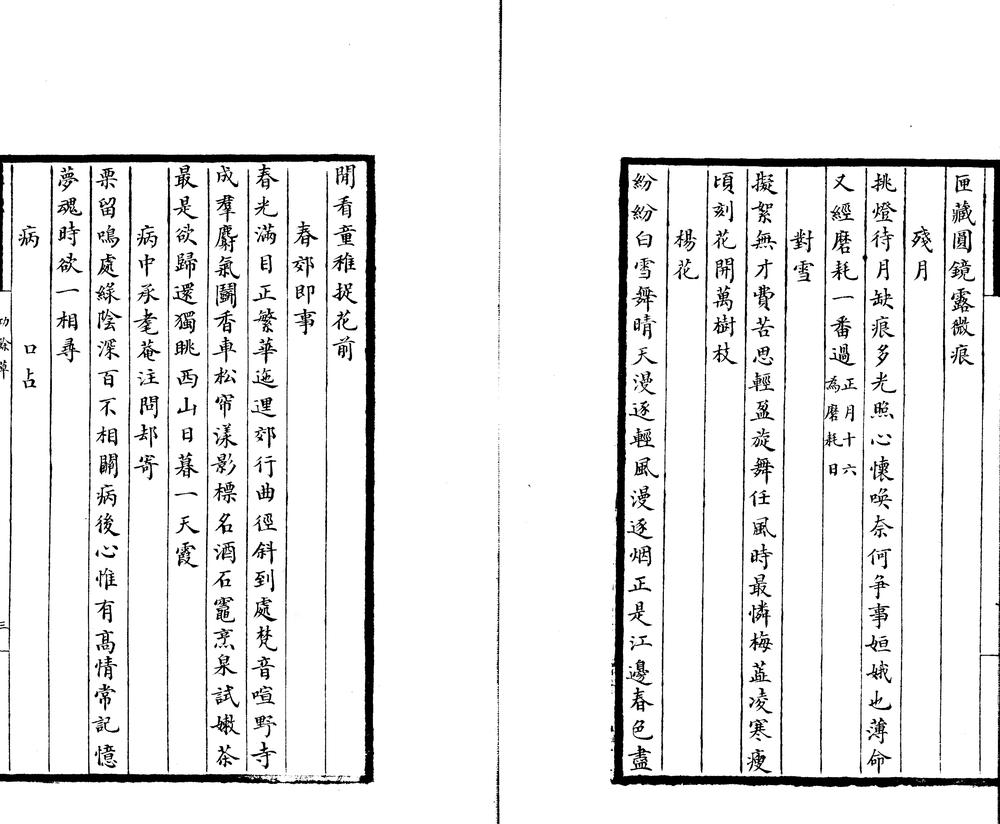 匣藏圓鏡露微痕
殘月
挑燈待月缺痕多光照心懷喚奈何爭事姮娥也薄命
又經磨耗一番過正月十六
為磨耗日
對雪
擬絮無才費苦思輕盈旋舞任風時最憐梅蕋凌寒瘦
頃刻花開萬樹枝
楊花
紛紛白雪舞晴天漫逐輕風漫逐烟正是江邊春色盡
閒看童稚捉花前
春郊即事
春光滿目正繁華迤逦郊行曲徑斜到處梵音喧野寺
成羣麝氣鬭香車松帘漾影標名酒石竈烹泉試嫩茶
最是欲歸還獨眺西山日暮一天霞
病中承耄菴注問却寄
栗留鳴處緑陰深百不相關病後心惟有高情常記憶
夢魂時欲一相尋
病 口占
三